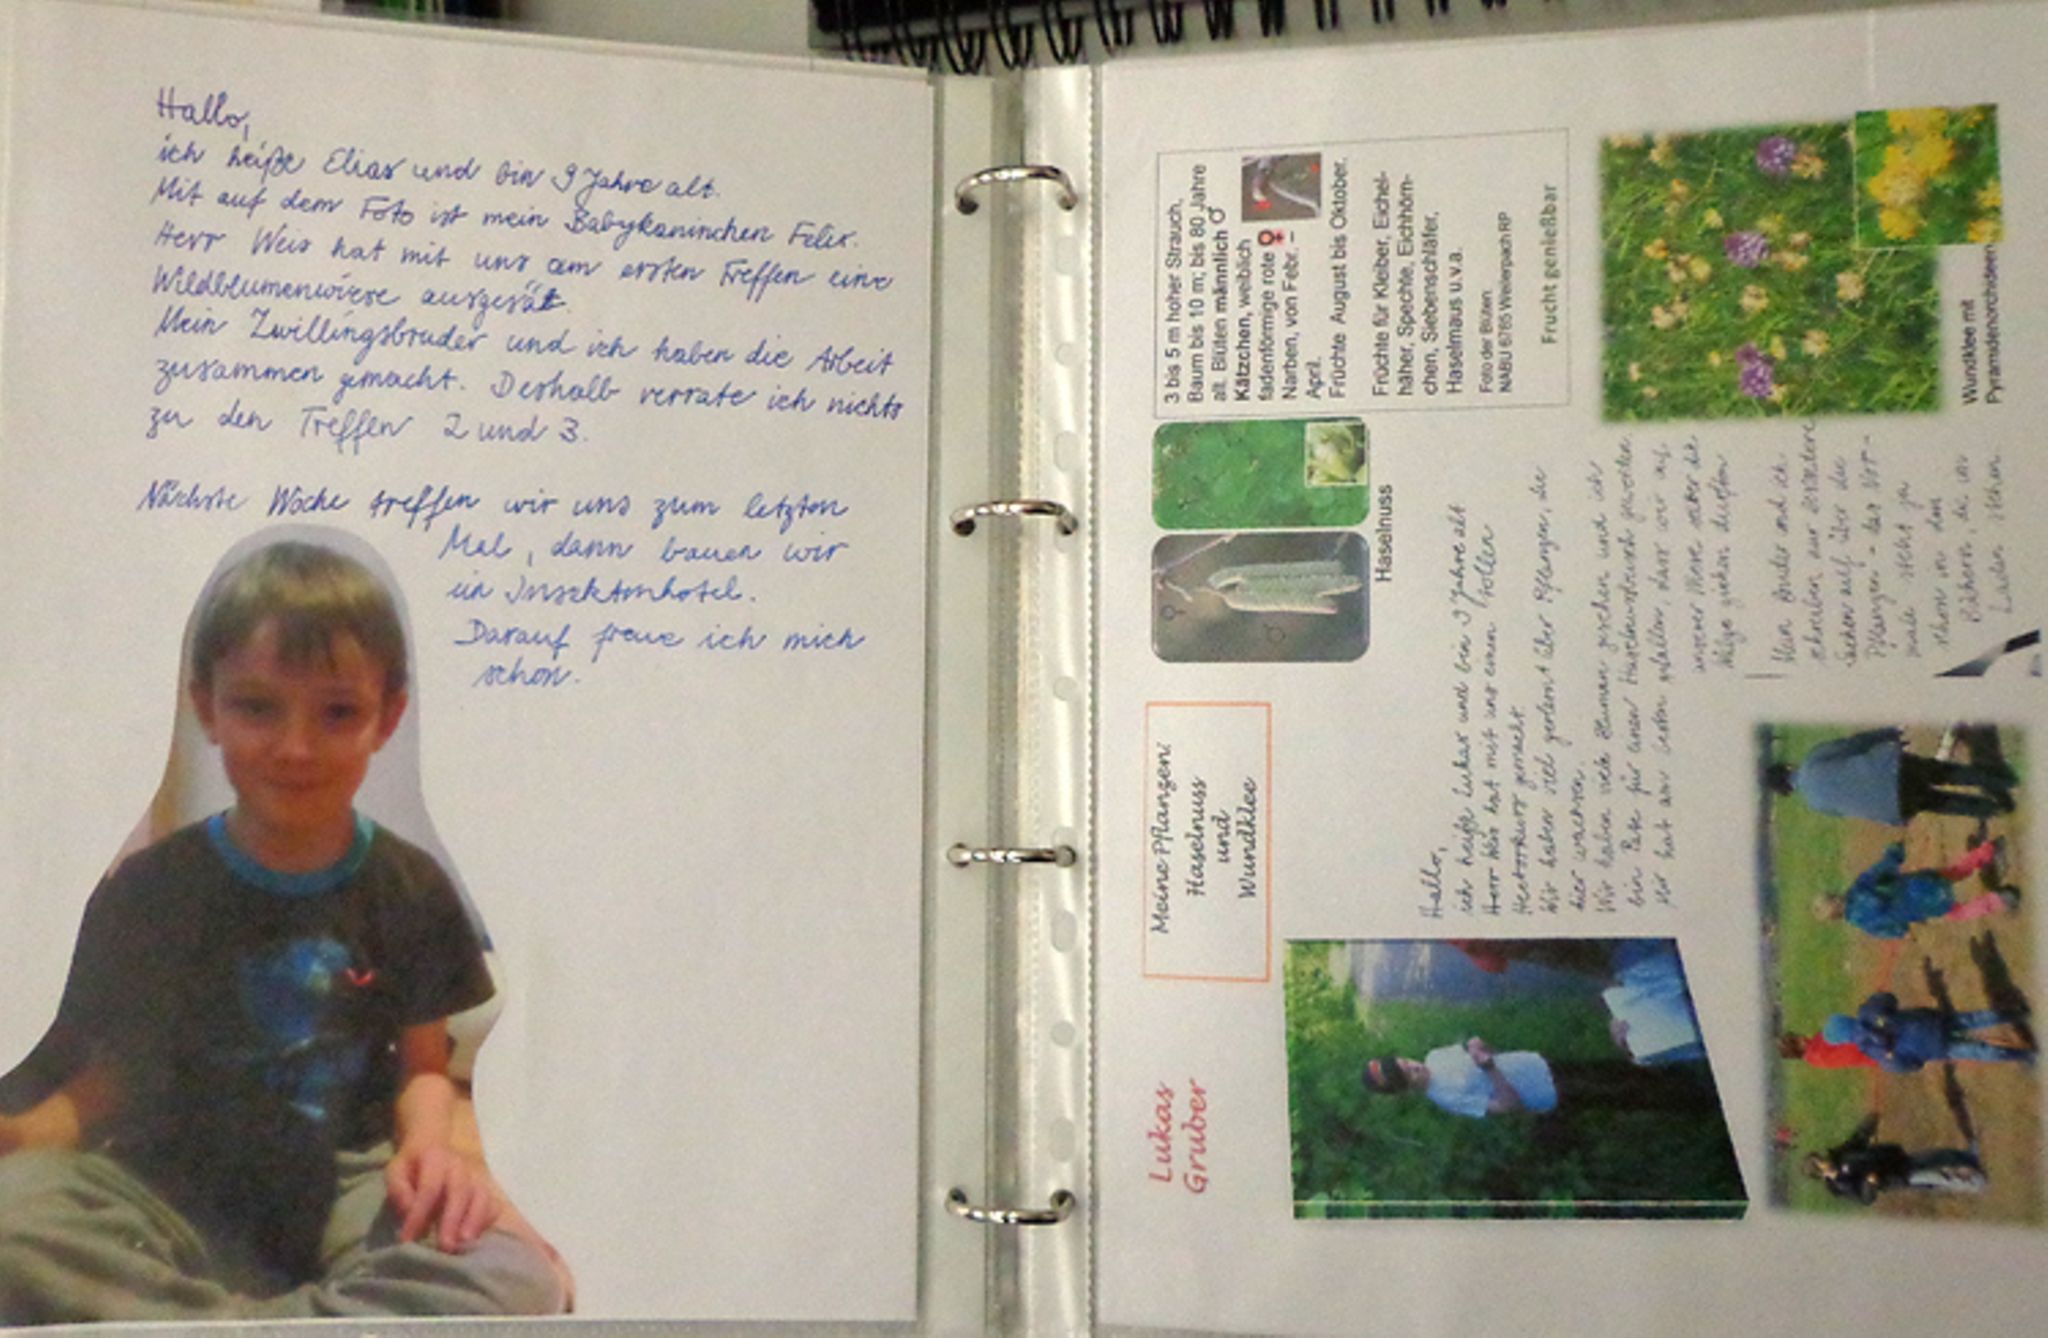 Hallo,
ich heiße Elias und bin 9 Jahre alt.
Mit auf dem Foto ist mein Babykaninchen Felix.
Herr Weis hat mit uns am ersten Treffen eine
Wildblumenwiese ausgesät.
Mein Zwillingsbruder und ich haben die Arbeit
zusammen gemacht. Deshalb verrate ich nichts
zu den Treffen 2 und 3.
Nächste Woche treffen wir uns zum letzten
Mal, dann bauen wir
ein Insektenhotel.
Darauf freue ich mich
schon.
Lukas
Gruber
Meine Pflanzen:
Haselnuss
und
Wundklee
Haselnuss
3 bis 5 m hoher Strauch,
Baum bis 10 m; bis 80 Jahre
alt. Blüten männlich ♂
Kätzchen, weiblich
fadenförmige rote ♀
Narben, von Febr. –
April.
Früchte August bis Oktober.
Früchte für Kleiber, Eichel-
häher, Spechte, Eichhörn-
chen, Siebenschläfer,
Haselmaus u.v.a.
Foto der Blüten
NABU 6785 Weilerpach RP
Frucht genießbar
Hallo,
ich heiße Lukas und bin 9 Jahre alt
Herr Weis hat mit uns einen tollen
Hectorkurs gemacht.
Wir haben viel gelernt über Pflanzen, die
hier wachsen.
Wir haben viele Blumen gesehen und ich
bin Pate für einen Haselnussbusch geworden
Mir hat am besten gefallen, dass wir auf
unserer Wiese selber die
ziehen durften
Mein Bruder und ich
schreiben zur
über die
Pflanzen
steht ja
schon in den
Büchern, die im
Laden stehen
Wundklee mit
Pyramidenorchideen